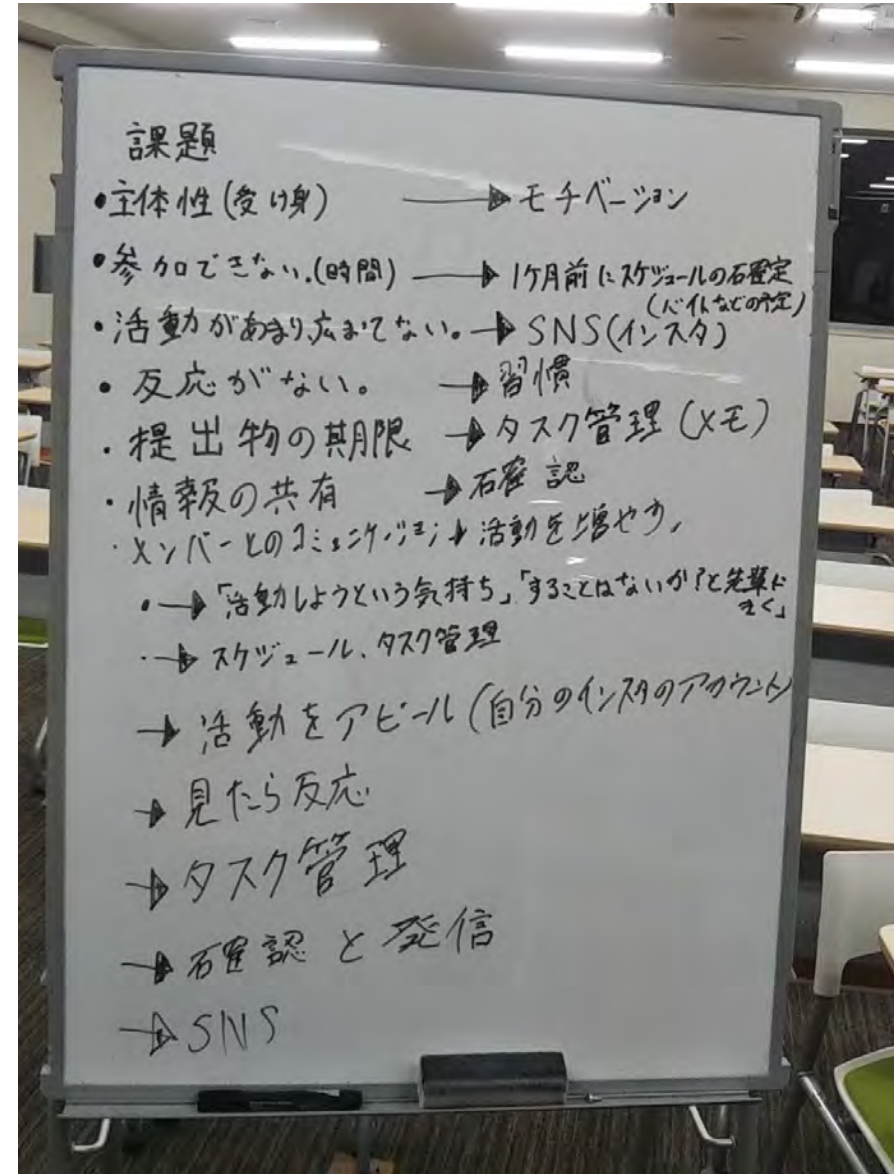 課題
•主体性(受け身) → モチベーション
•参加できない.(時間) → 1ヶ月前にスケジュールの確定
(バイトなどの予定)
・活動があまり広まてない。→ SNS(インスタ)
・反応がない。 → 習慣
・提出物の期限 → タスク管理(メモ)
・情報の共有 → 確認
・メンバーとのコミュニケーション → 活動を増やす。
•→「活動しようという気持ち」「することはないか?と先輩に
きく」
・→ スケジュール、タスク管理
→ 活動をアピール(自分のインスタのアカウント)
→ 見たら反応
→ タスク管理
→ 確認と発信
→ SNS